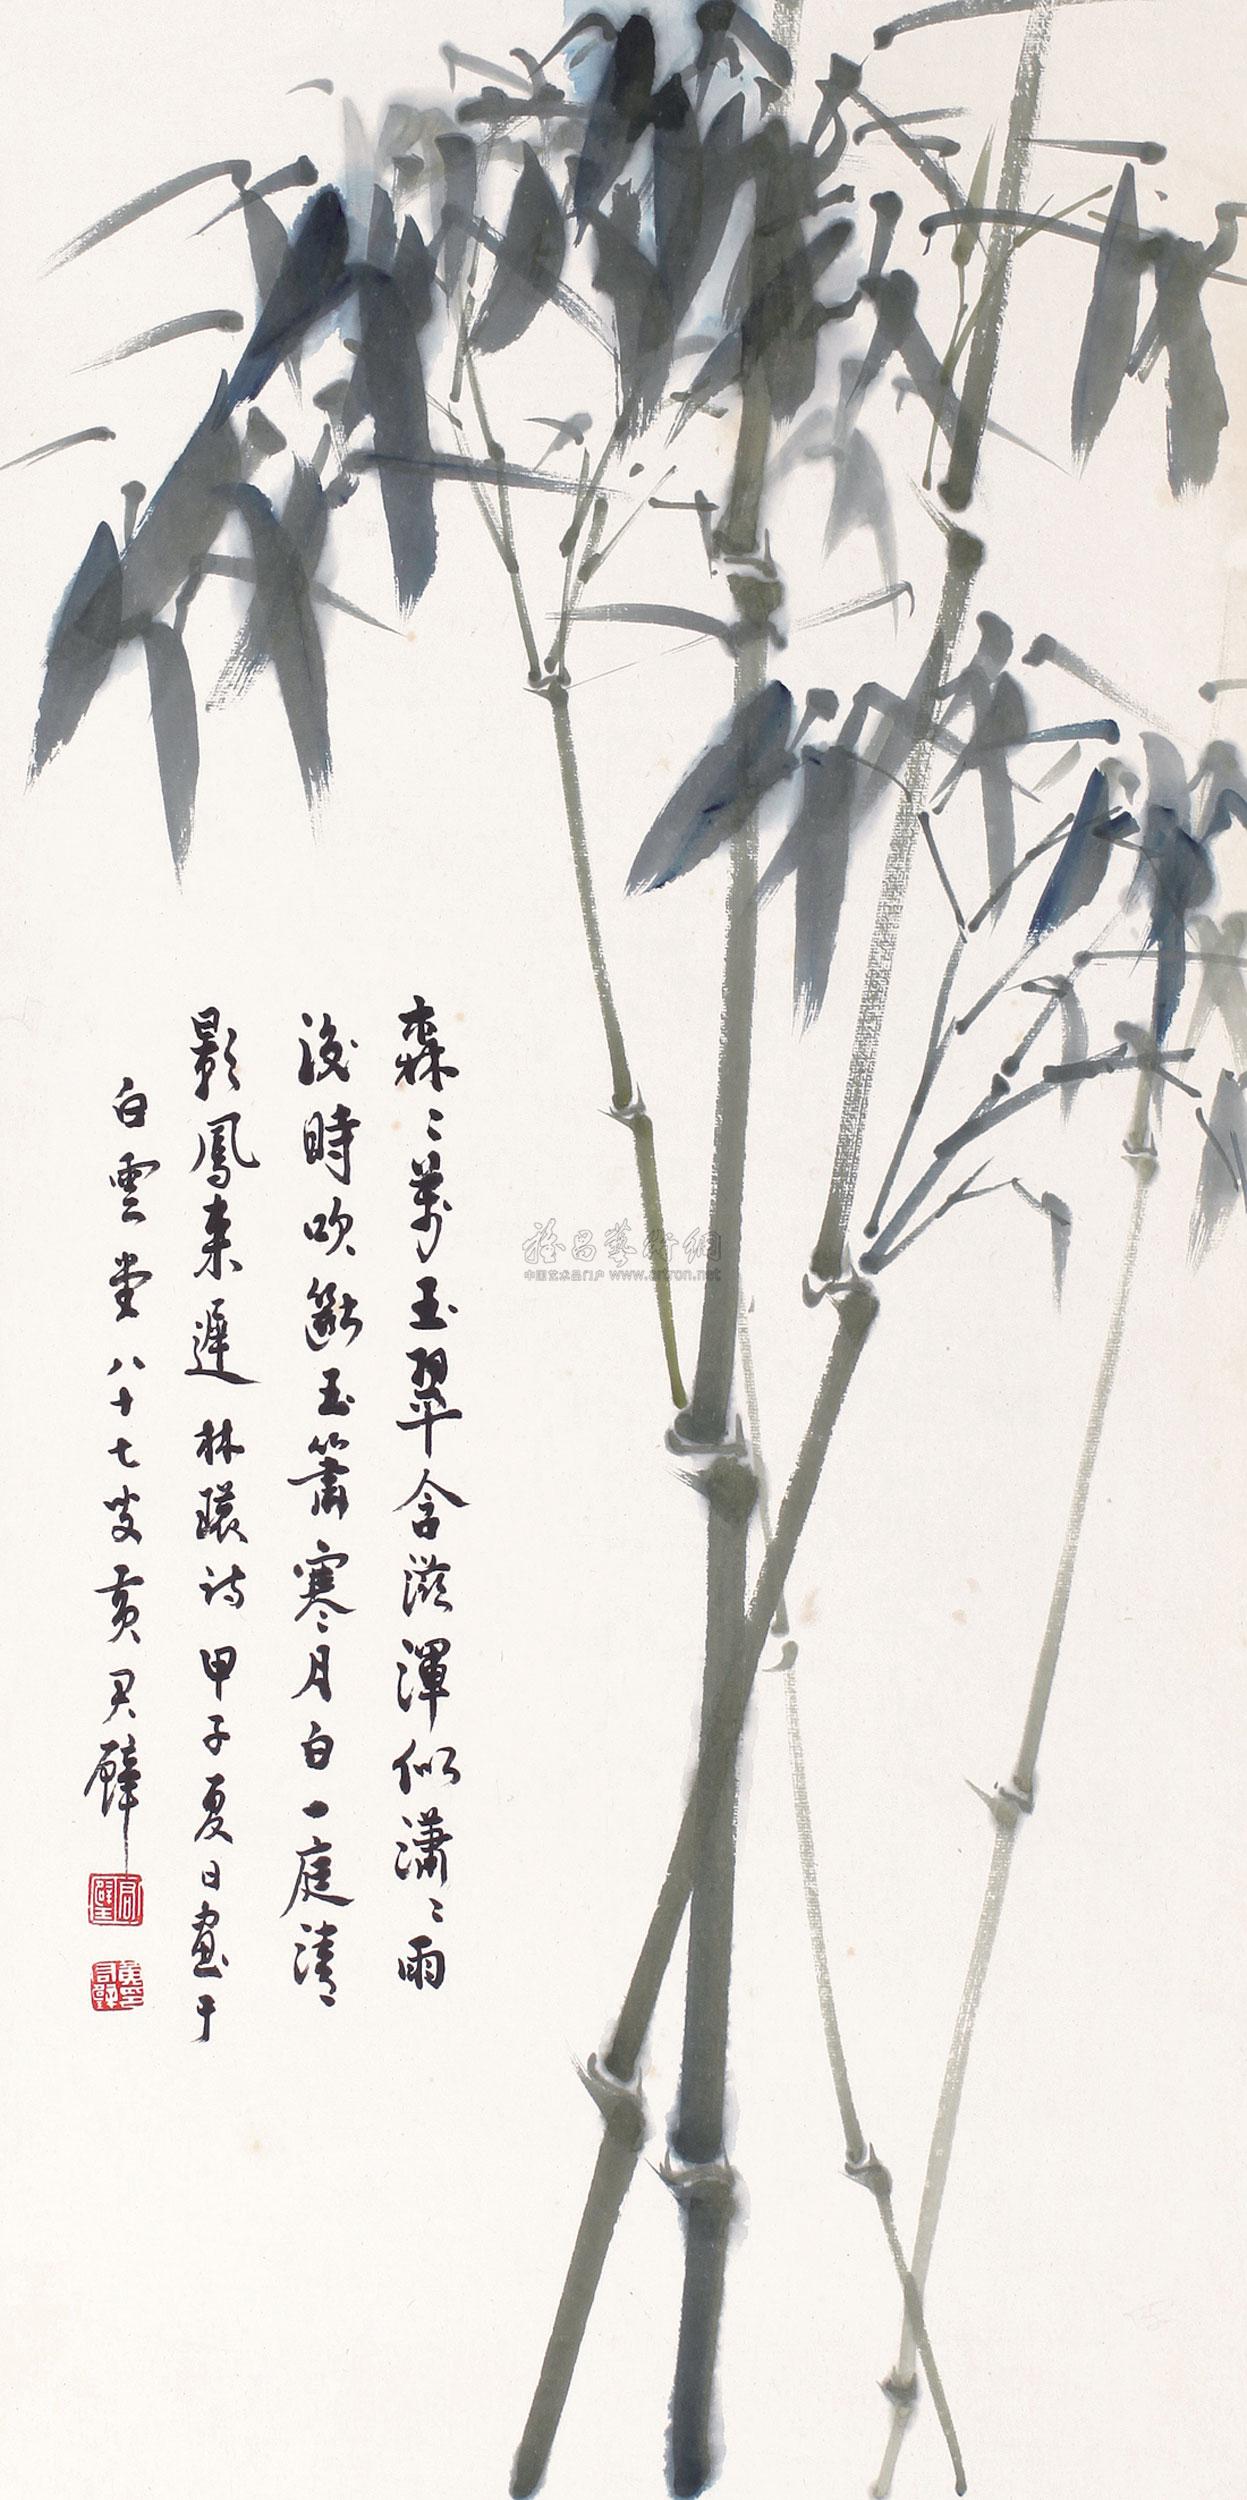 森〻萬玉翠含滋渾似瀟〻雨
後時吹斷玉簫寒月白一庭清
影鳳來遲 林環詩 甲子夏日畫于
白雲堂八十七叟黃君璧
君璧
黃君璧印
雅昌藝術網
中国艺术品门户 www.artron.net